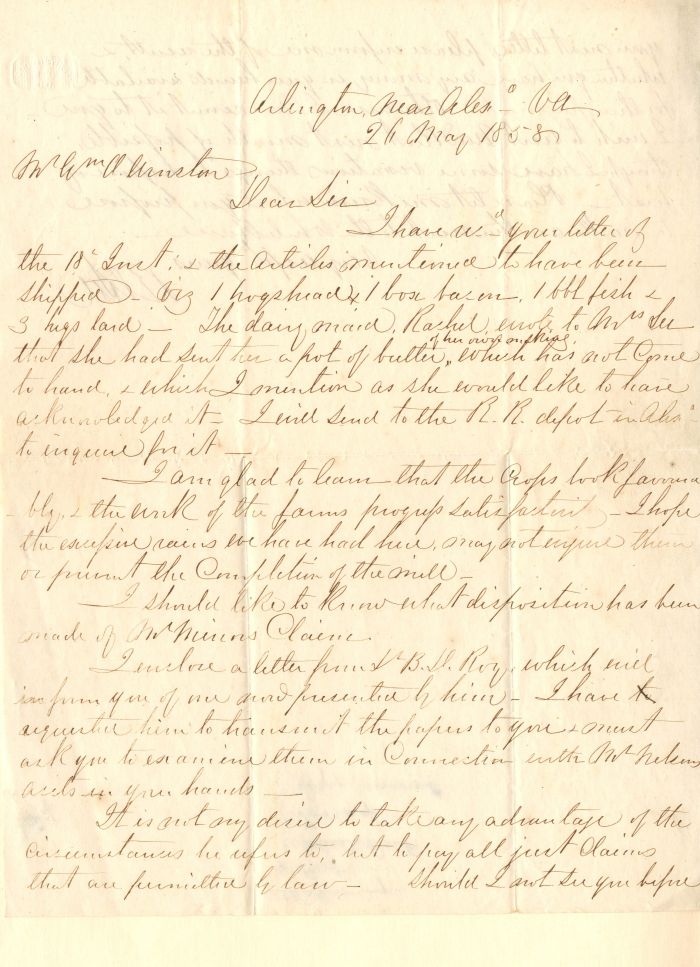 Arlington, near Alexa Va
26 May 1858
Mr Wm O. Winston
Dear Sir
I have recd your letter of
the 18t Inst: & the articles mentioned to have been
shipped - Viz 1 hogshead & 1 box bacon, 1 bbl fish &
3 kegs lard - The dairy maid, Rachel, wrote to Mrs Lee
that she had sent her a pot of butter, of her own making, which has not Come
to hand, & which I mention as she would like to have
acknowledged it - I will send to the R. R. depot in Alexa
to inquire for it -
I am glad to learn that the Crops look favoura
-bly, & the work of the farms progress satisfactorily - I hope
the excessive rains we have had here, may not injure them
or prevent the Completion of the mill -
I should like to know what disposition has been
made of Mr Minors Claim.
I enclose a letter from Dr B. D. Roy, which will
inform you of one now presented by him - I have
requested him to transmit the papers to you & must
ask you to examine them in Connection with Mr Nelson
accts in your hands -
It is not my desire to take any advantage of the
circumstances he refers to, but to pay all just Claims
that are permitted by law - Should I not see you before